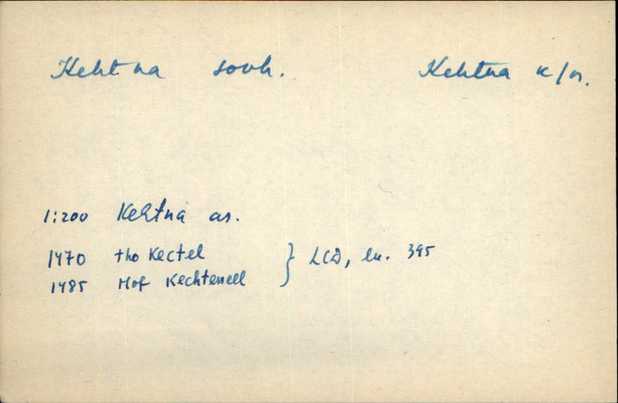 Kehtna sovh. Kehtna k/n.
1:200 Kehtna as.
1470 tho Kectel } LCD, lk. 395
1485 Hof Kechtenell